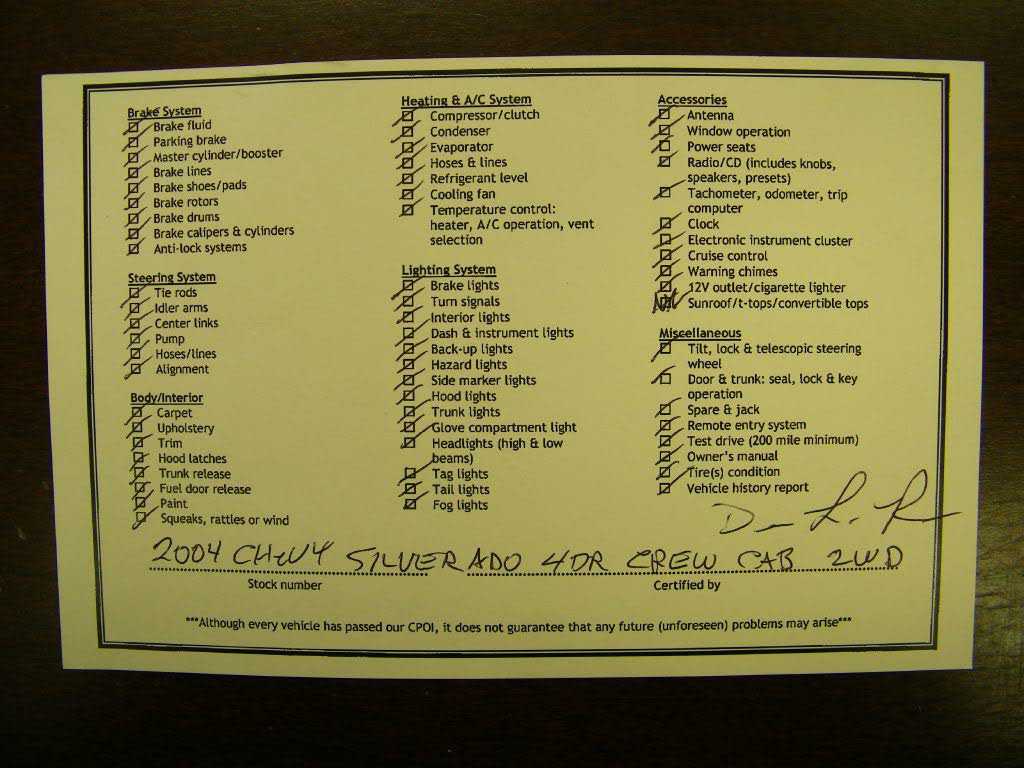 Brake System
Brake fluid
Parking brake
Master cylinder/booster
Brake lines
Brake shoes/pads
Brake rotors
Brake drums
Brake calipers & cylinders
Anti-lock systems
Steering System
Tie rods
Idler arms
Center links
Pump
Hoses/lines
Alignment
Body/Interior
Carpet
Upholstery
Trim
Hood latches
Trunk release
Fuel door release
Paint
Squeaks, rattles or wind
Heating & A/C System
Compressor/clutch
Condenser
Evaporator
Hoses & lines
Refrigerant level
Cooling fan
Temperature control:
heater, A/C operation, vent
selection
Lighting System
Brake lights
Turn signals
Interior lights
Dash & instrument lights
Back-up lights
Hazard lights
Side marker lights
Hood lights
Trunk lights
Glove compartment light
Headlights (high & low
beams)
Tag lights
Tail lights
Fog lights
Accessories
Antenna
Window operation
Power seats
Radio/CD (includes knobs,
speakers, presets)
Tachometer, odometer, trip
computer
Clock
Electronic instrument cluster
Cruise control
Warning chimes
12V outlet/cigarette lighter
Sunroof/t-tops/convertible tops
Miscellaneous
Tilt, lock & telescopic steering
wheel
Door & trunk: seal, lock & key
operation
Spare & jack
Remote entry system
Test drive (200 mile minimum)
Owner's manual
Tire(s) condition
Vehicle history report
2004 CHEVY SILVERADO 4DR CREW CAB 2WD
Stock number
Certified by
***Although every vehicle has passed our CPOI, it does not guarantee that any future (unforeseen) problems may arise***